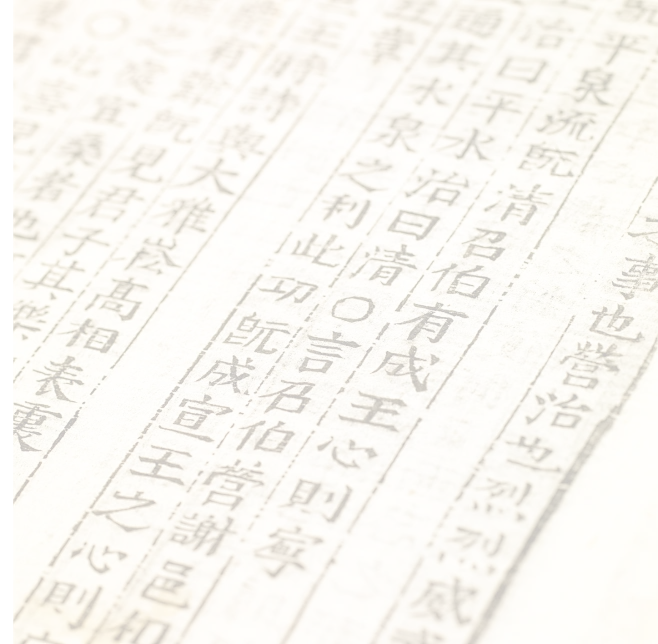 之事也營治也烈烈威
既平泉流既清召伯有成王心則寧
土治曰平水治曰清○言召伯營謝邑相
通其水泉之利此功既成宣王之心則
五章
宣王時詩與大雅崧高相表裏
有 既見君子其樂
○此 宜桑者也